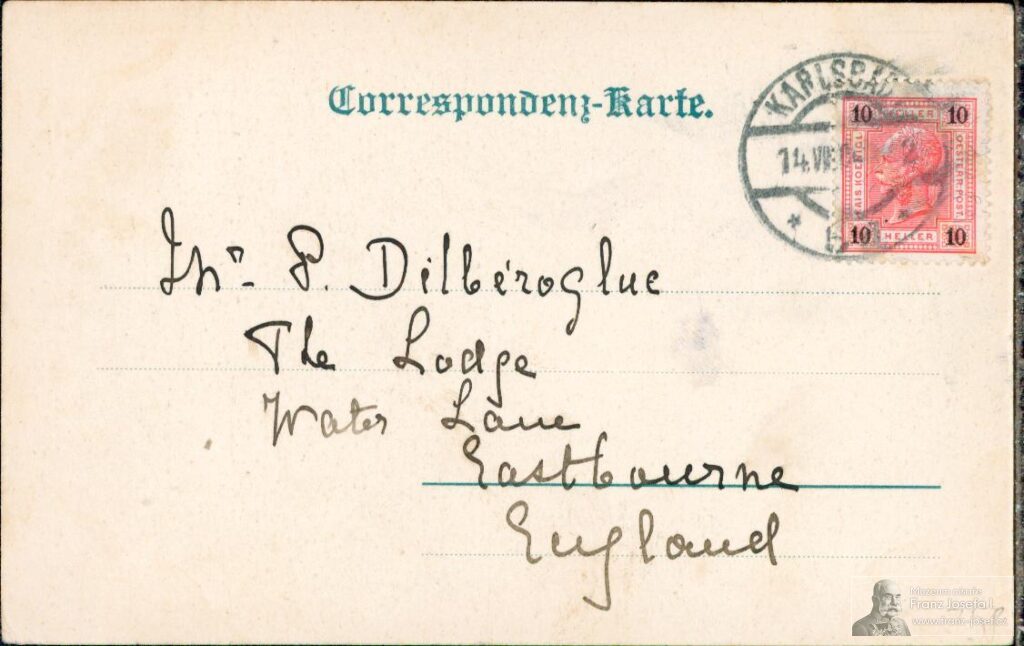 Correspondenz-Karte.
KARLSBAD
14.VII
10 HELLER 10
KAIS. KOENIGL.
OESTERR. POST.
10 HELLER 10
P. Dilbéroglue
The Lodge
Water Lane
Eastbourne
England
Muzeum císaře
Franz Josefa I.
www.franz-josef.cz